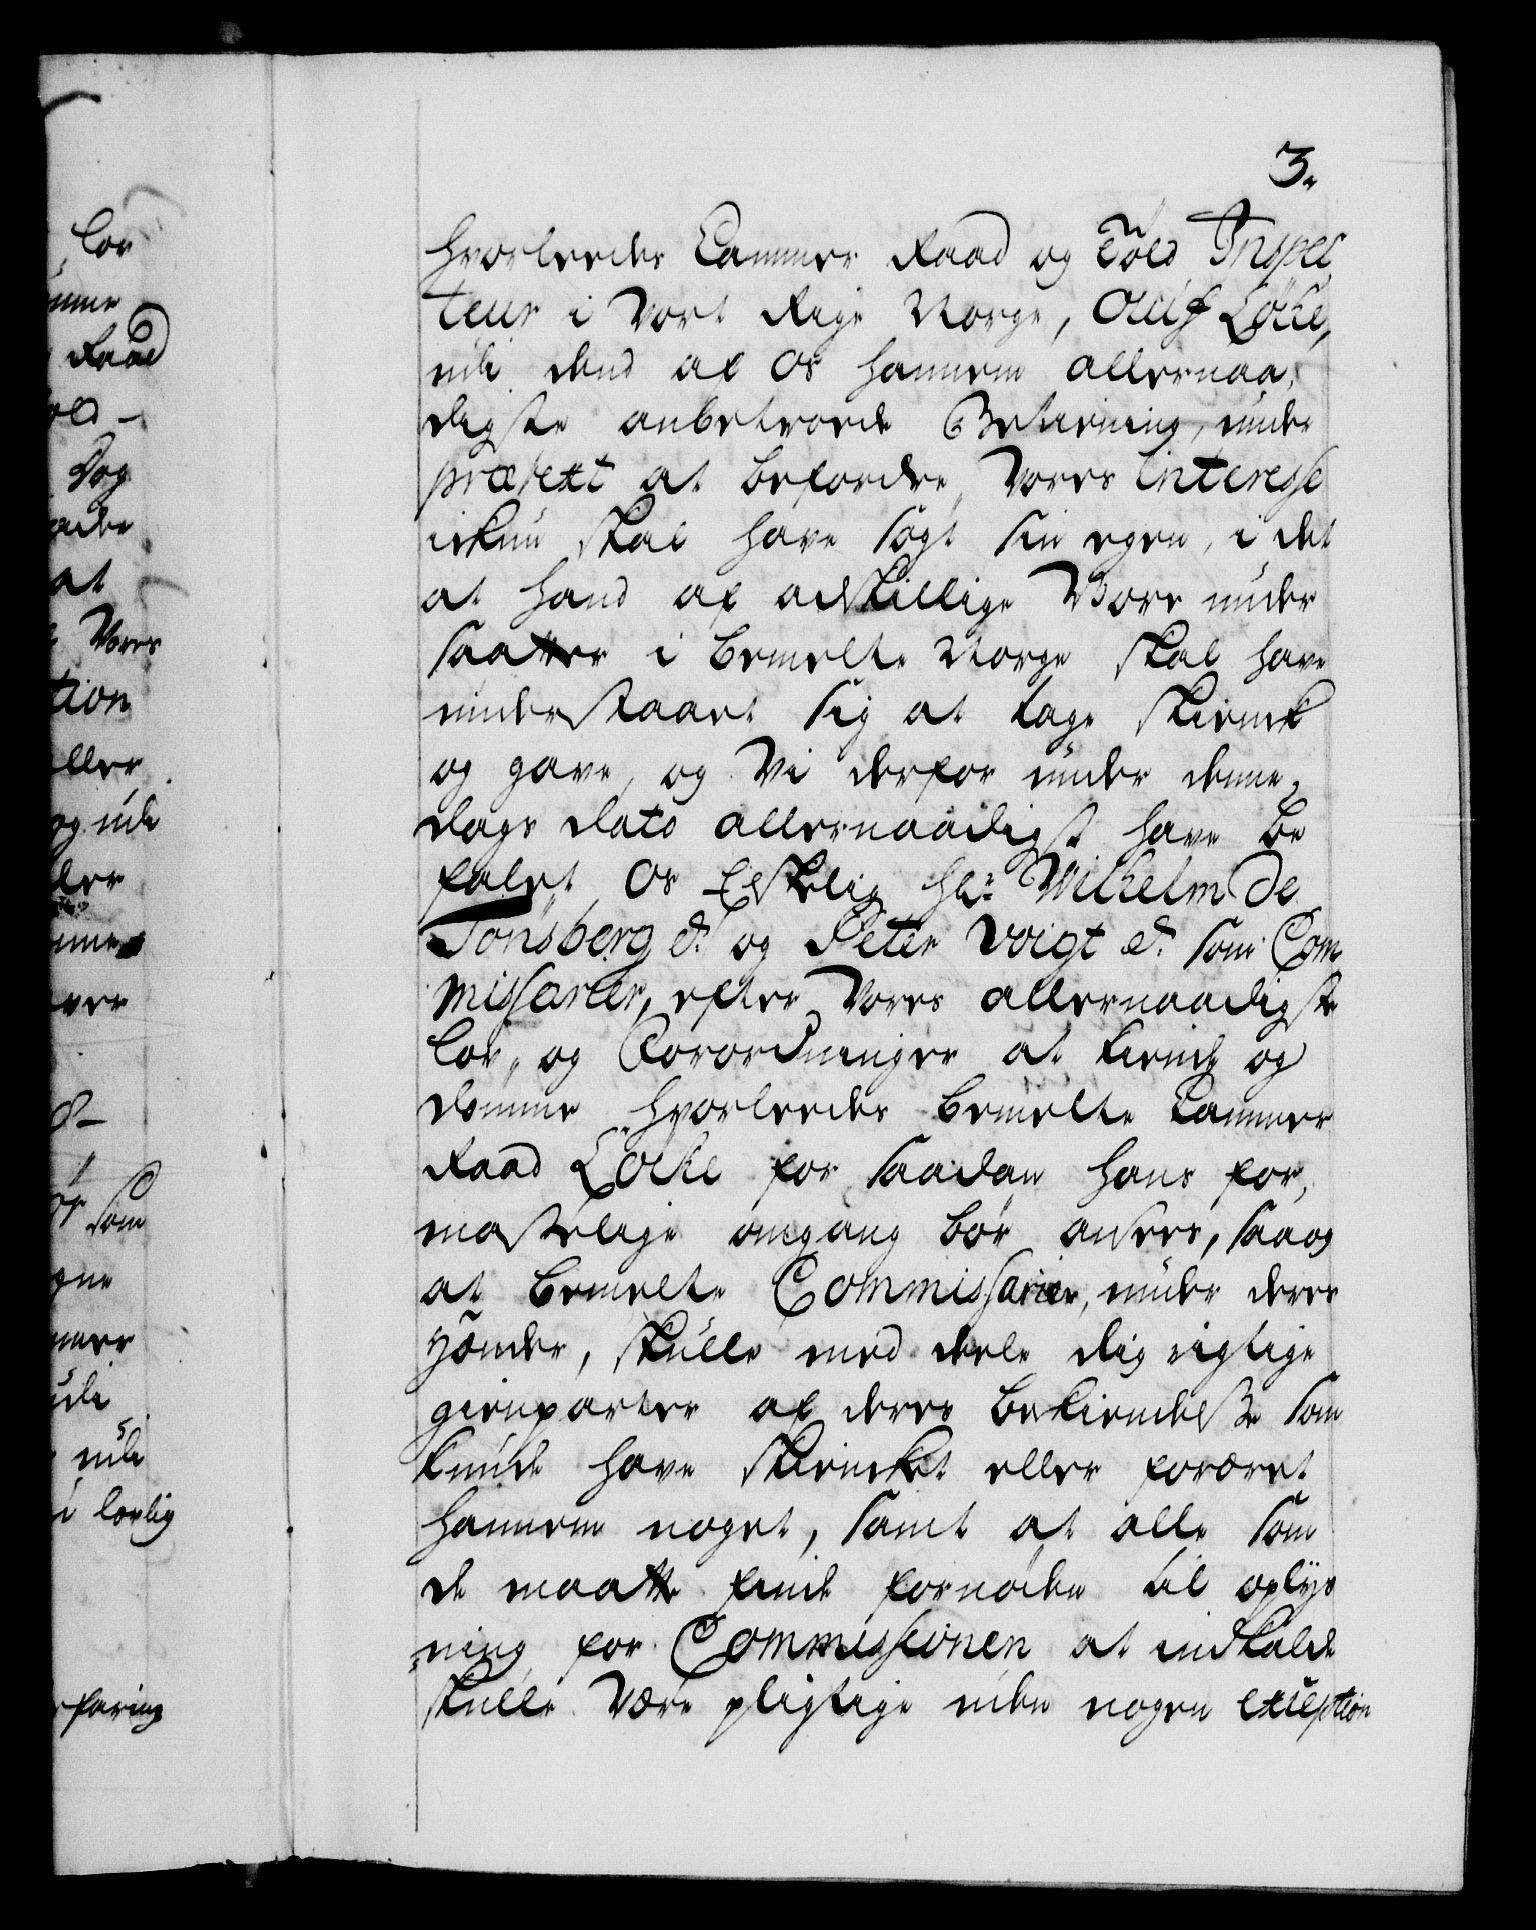 3.
hvorleedes Cammer Raad og Told Inspec
teur i Vort Rige Norge, Oluf Löcke,
udi dend af Os hannem allernaa,
digste anbetroede Betiening, under
prætext at befordre Vores Interesse
ickun skal have søgt sin egen, i det
at hand af adskillige Vore under
saatter i bemelte Norge skal have
understaaet sig at tage Skienck
og gave, og Vi derfor under denne
dags dato allernaadigst have be
falet Os Elskelig Hr: Wilhelm de
Tonsberg &. og Peter Voigt &. som Com
missarier, efter Vores allernaadigste
lov, og Forordninger at kiende og
dømme hvorleedes bemelte Cammer
Raad Löcke for saadan hans for,
mastelige omgang bør ansees, saa og
at bemelte Commissarier, under deres
Hænder, skulle med deele dig rigtige
gienparter af deres bekiendelsße som
kunde have skiencket eller foræret
hannem noget, samt at alle som
de maatte finde fornøden til oplys
ning for Commissionen at indkalde
skulle være pligtige uden nogen exception
lov
Raad
Dog
at
Vores
tion
eller
og udi
som
udi
lovlig